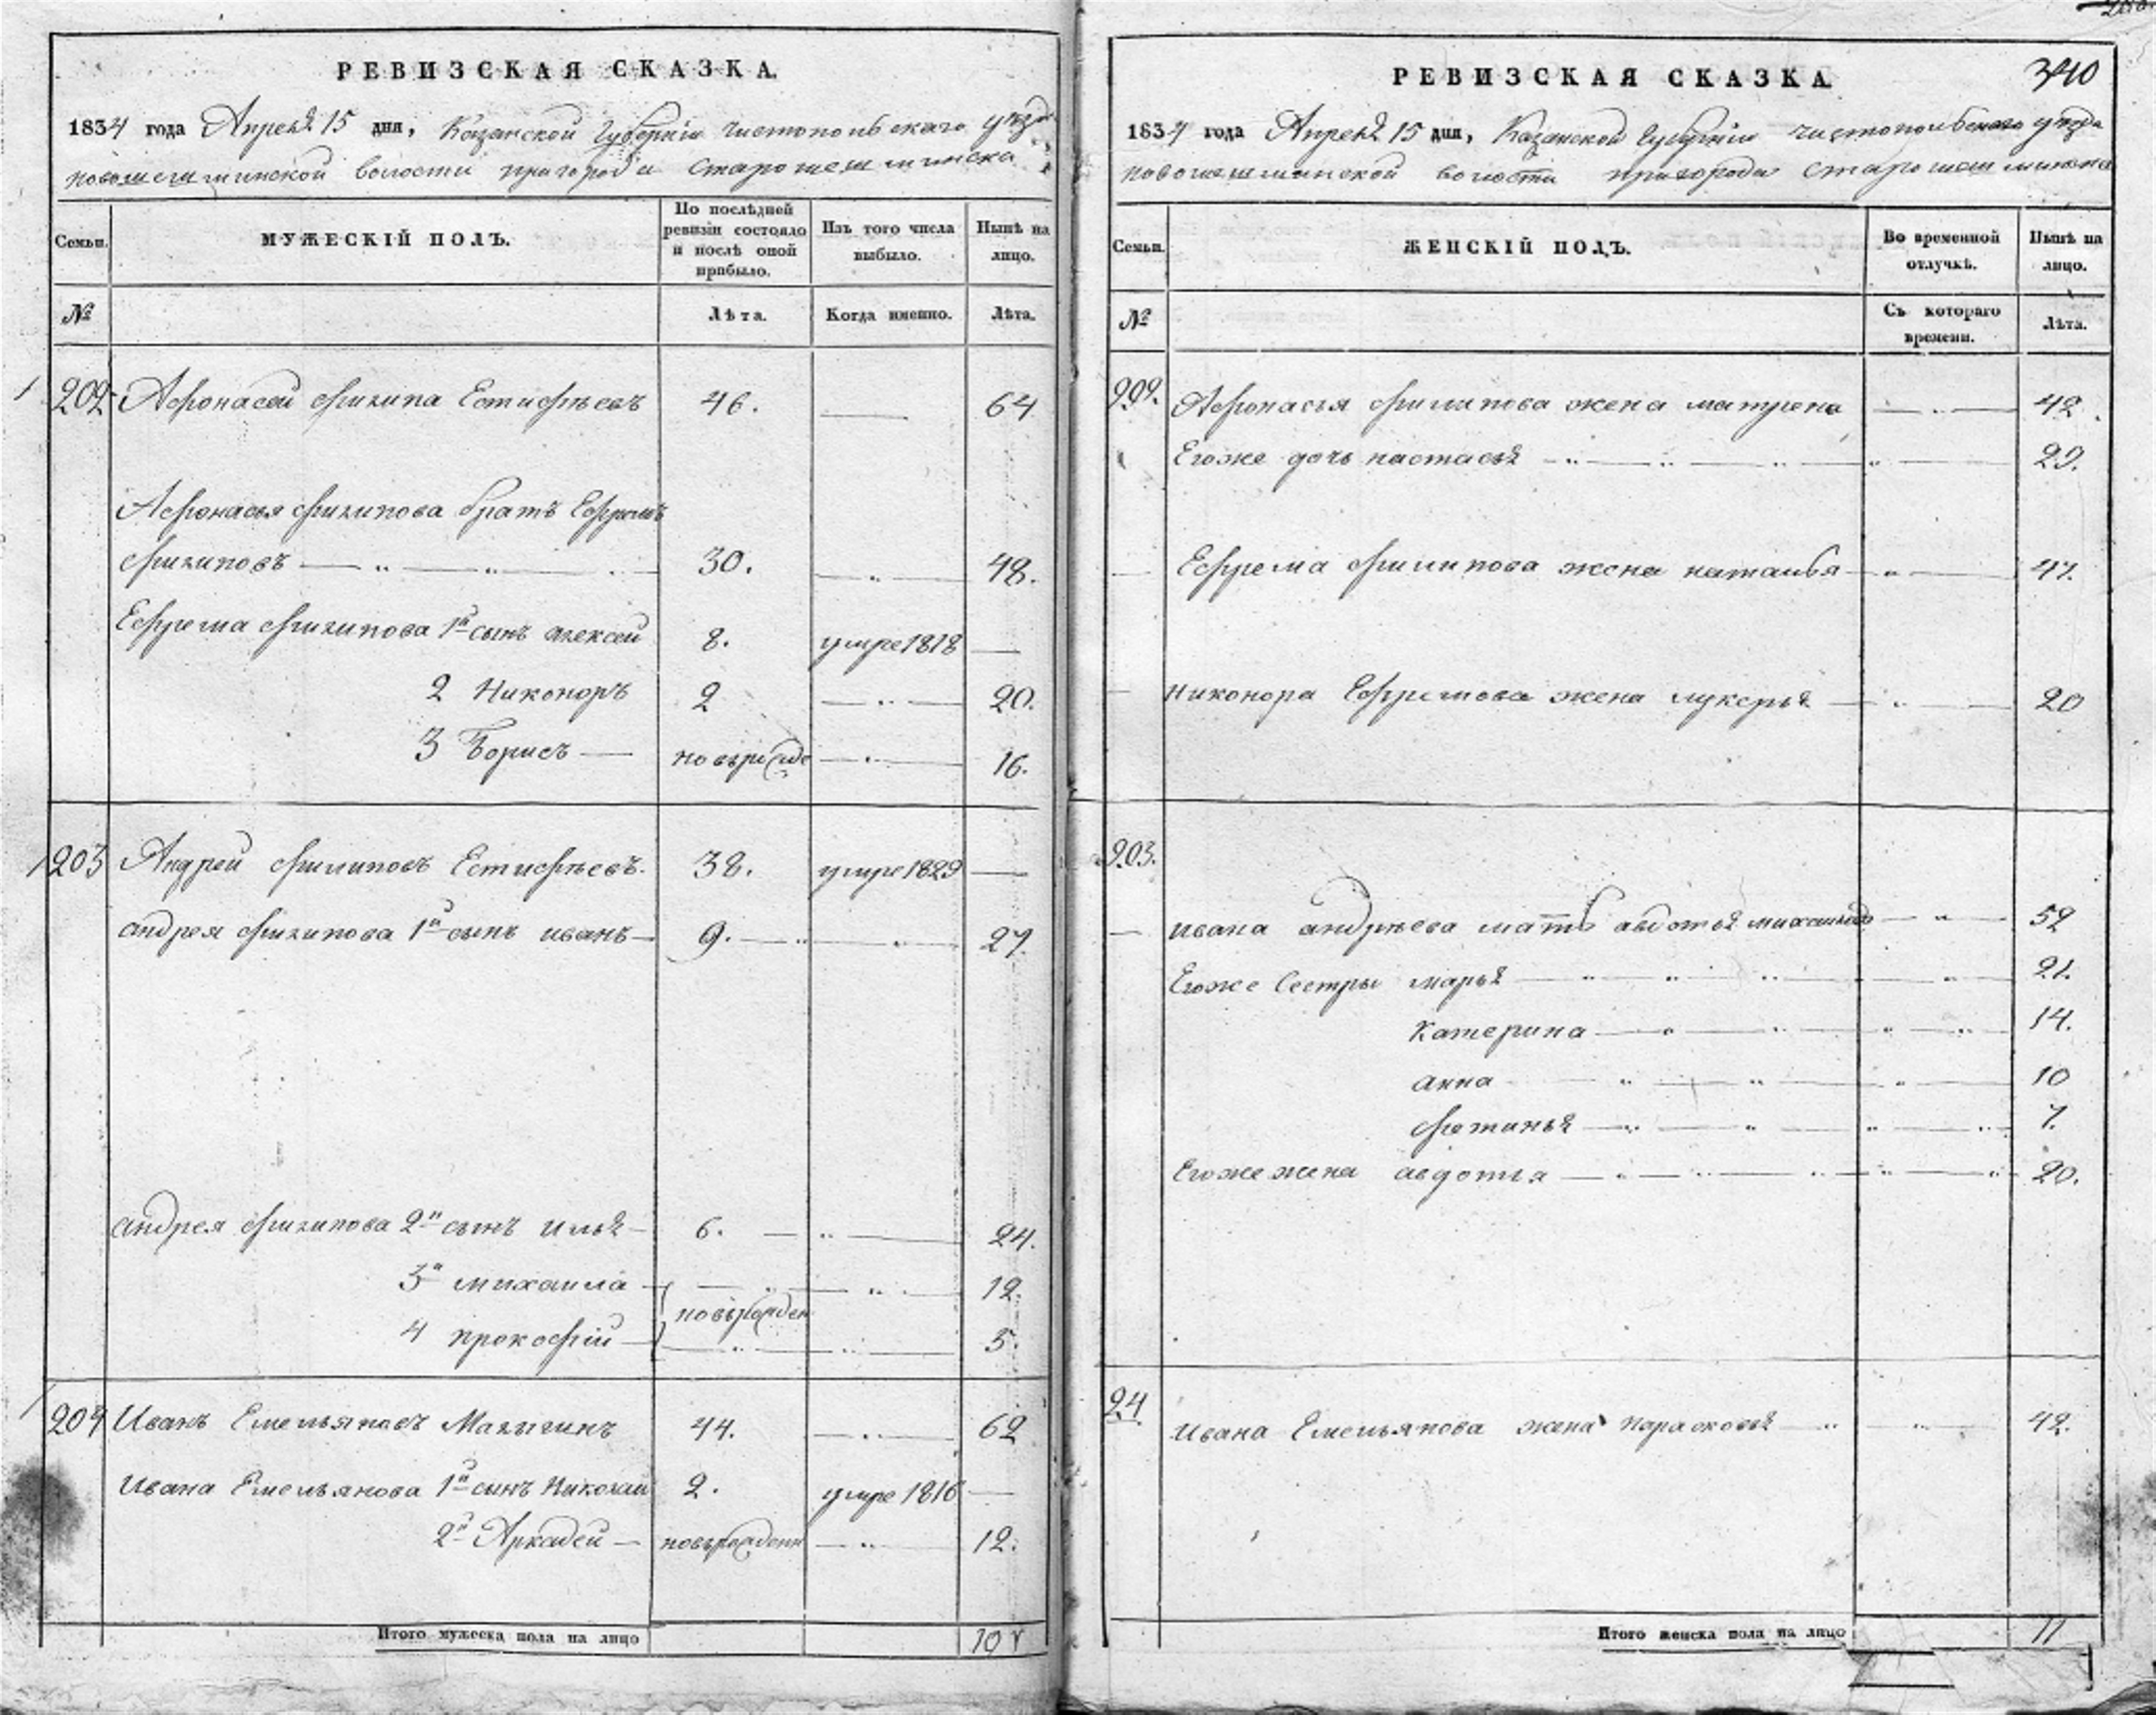 РЕВИЗСКАЯ СКАЗКА.
1834 года Апреля 15 дня, Казанской Губернии Чистопольскаго уезда
новошешминской волости пригорода старошешминска
Семьи. МУЖЕСКІЙ ПОЛЪ. По послѣдней ревизіи состояло и послѣ оной прибыло. Изъ того числа выбыло. Нынѣ на лицо.
№ Лѣта. Когда именно. Лѣта.
202 Афонасей филипа Естифѣевъ 46. 64
Афонасья филипова братъ Ефремъ
филиповъ 30. 48.
Ефрема филипова 1й сынъ алексей 8. умре 1818
2 Никоноръ 2 20.
3 Борисъ 16.
203 Андрей филиповъ Естифѣевъ. 38. умре 1829
андрея филипова 1й сынъ иванъ 9. 27.
андрея филипова 2й сынъ илья 6. 24.
3й михаила 12.
новърожден
4 прокофій 5.
204 Иванъ Емельяновъ Малыгинъ 44. 62
Ивана Емельянова 1й сынъ Николай 2. умре 1816
2й Аркадей новърожденн 12.
Итого мужеска пола на лицо 10
340
РЕВИЗСКАЯ СКАЗКА
1834 года Апреля 15 дня, Казанской Губерніи чистопольскаго уезда
новошешминской волости пригорода старошешминска
Семьи. ЖЕНСКІЙ ПОЛЪ. Во временной отлучкѣ. Нынѣ на лицо.
№ Съ котораго времени. Лѣта.
202. Афонасья филипова жена матрена 42.
Егоже дочь настасья 29.
Ефрема филипова жена наталья 47.
Никонора Ефремова жена лукерья 20
203.
ивана андрѣева мать авдотья 52
Егоже Сестры марья 21.
катерина 14.
анна 10
фетинья 7.
Егоже жена авдотья 20.
24 ивана Емельянова жена парасковья 42.
Итого женска пола на лицо 11